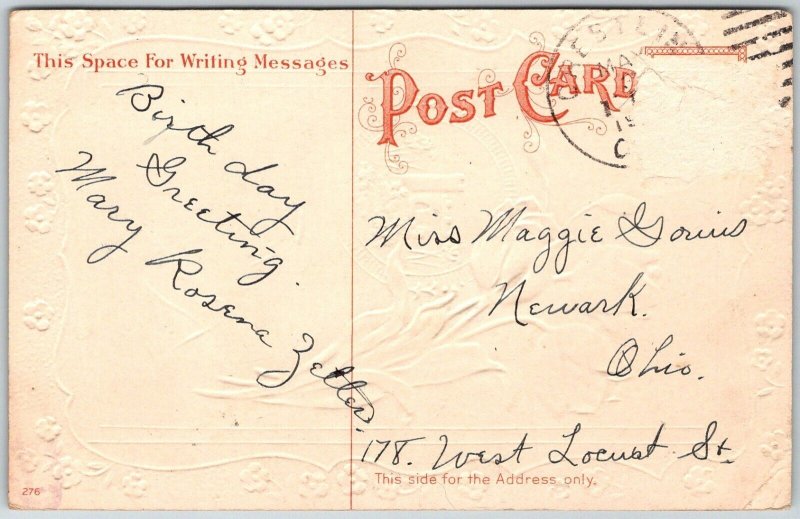 This Space For Writing Messages
POST CARD
Birthday
Greeting.
Mary Rosena Zeller.
Miss Maggie
Newark.
Ohio.
178. West Locust St.
This side for the Address only.
276